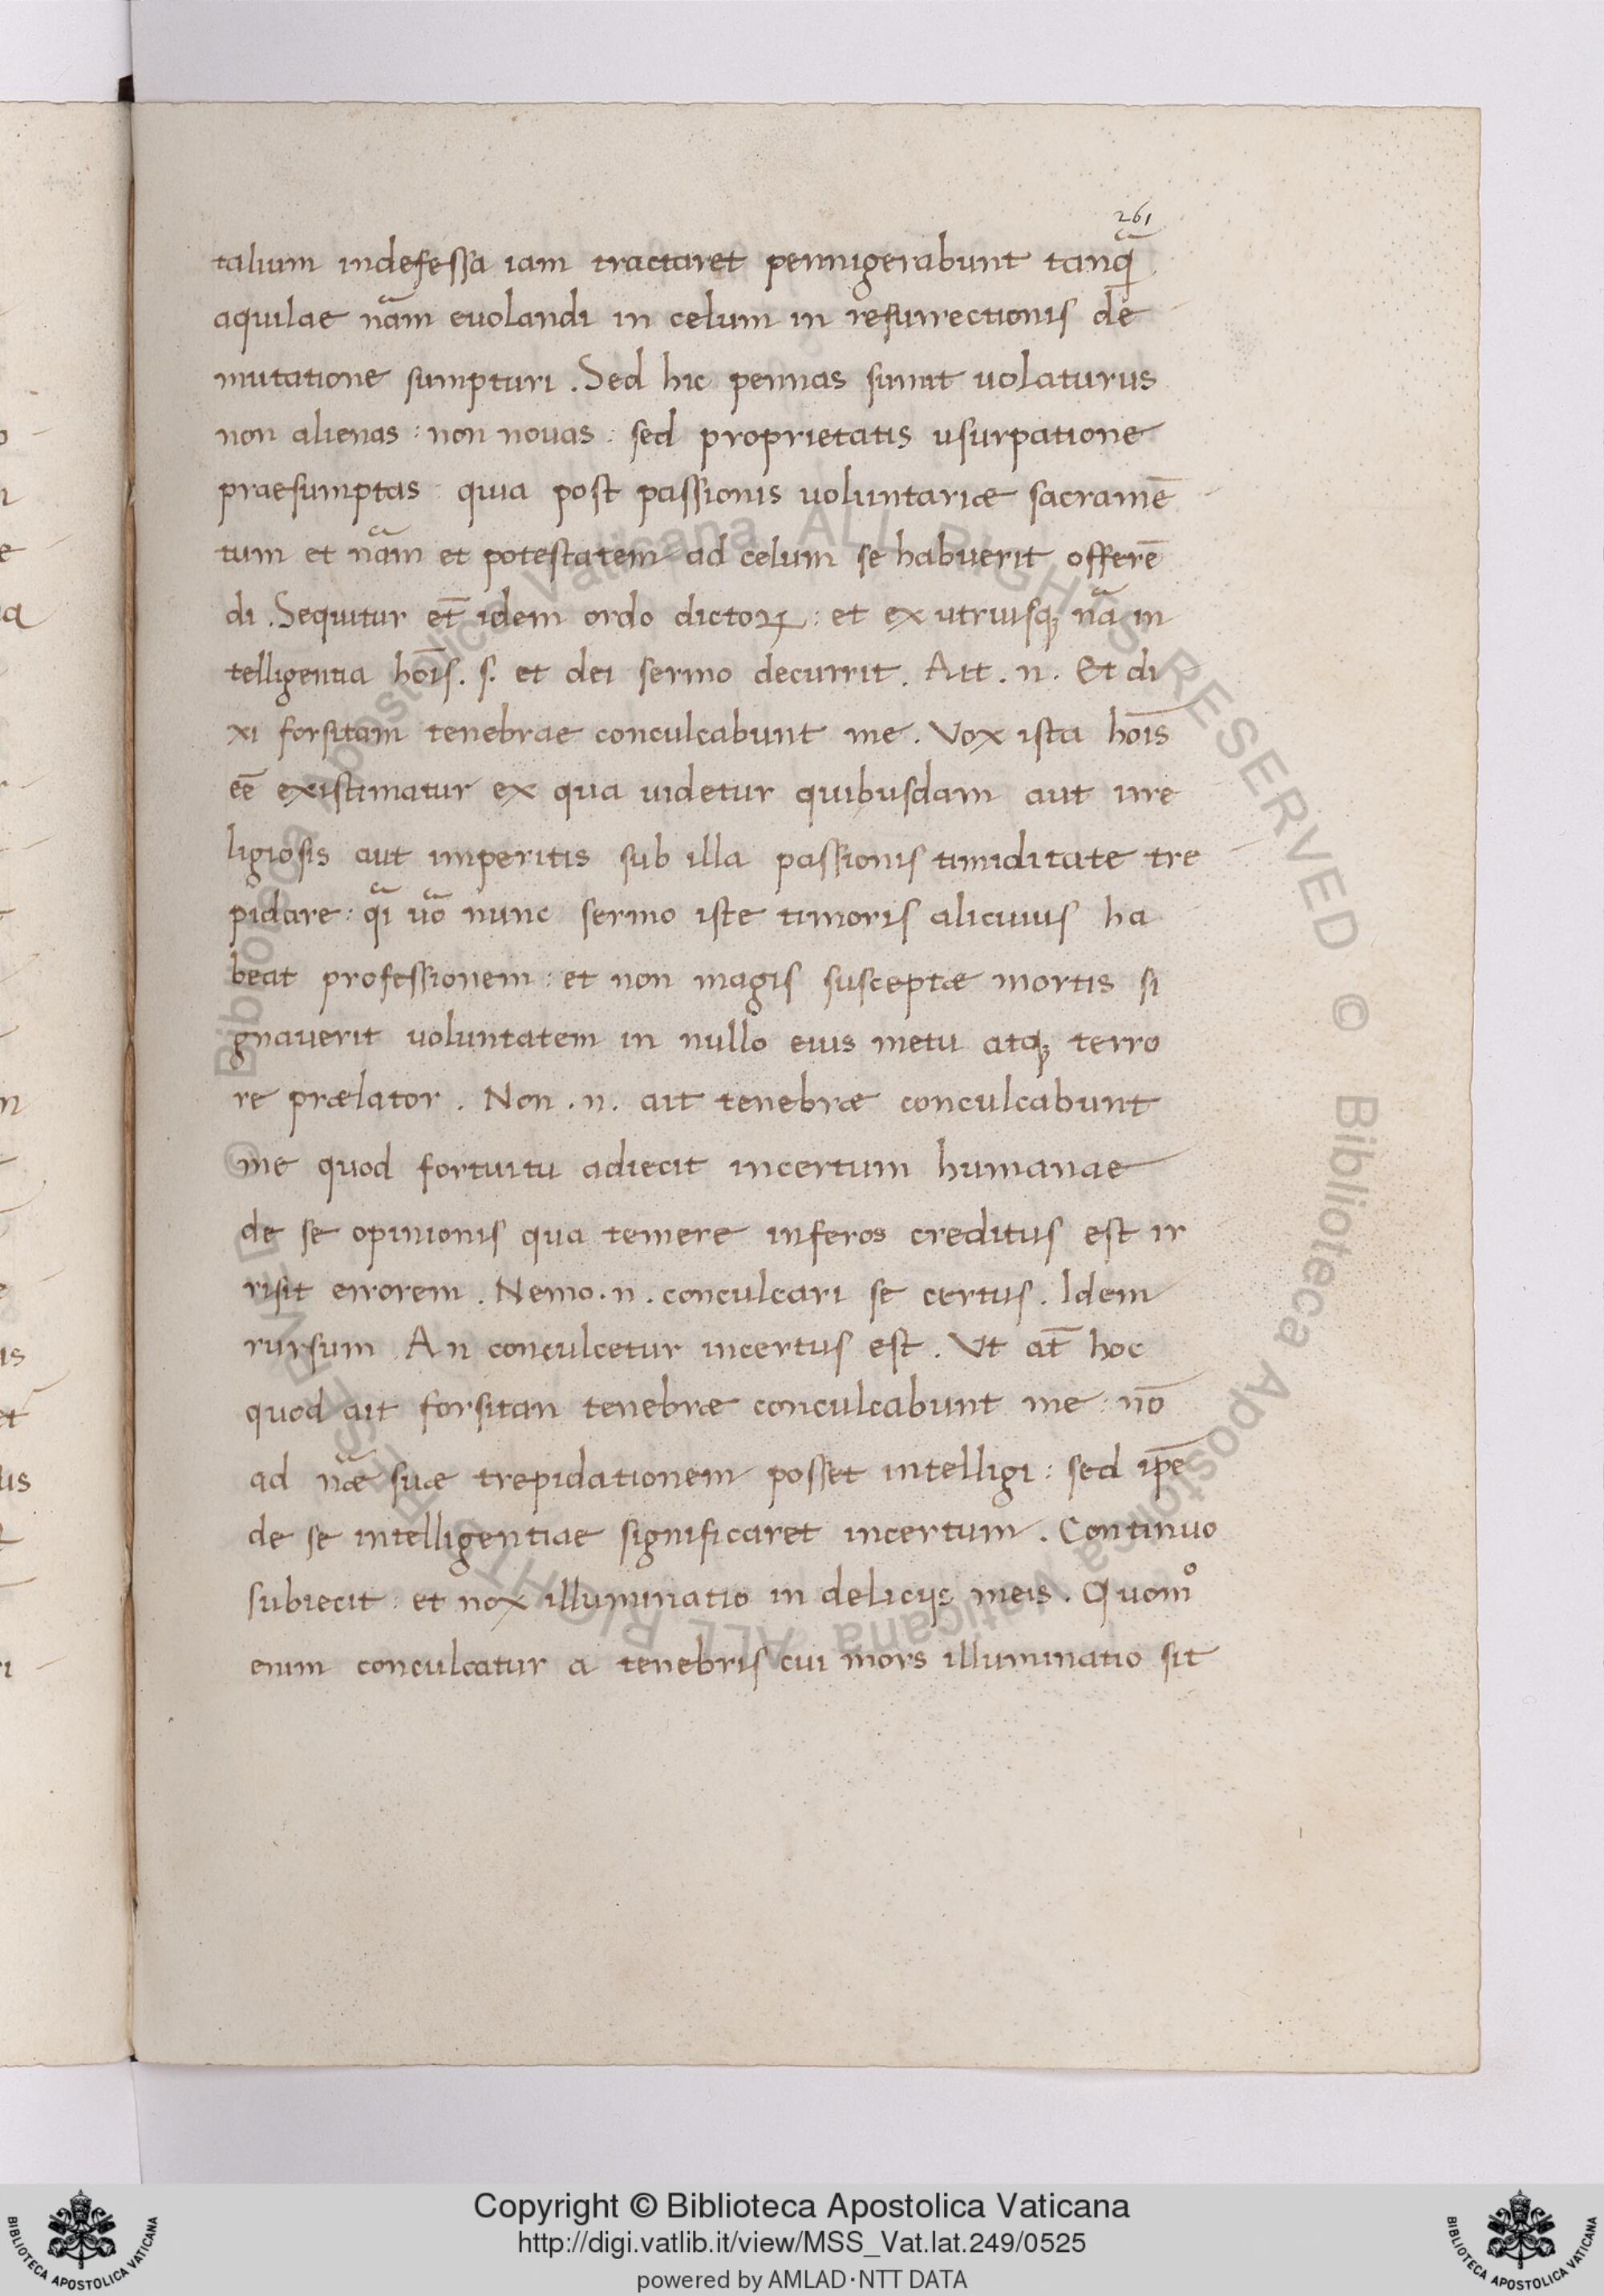 261
talium indefessa iam tractaret pennigerabunt tanq̃
aquilae nãm euolandi in celum in resurrectionis de
mutatione sumpturi . Sed hic pennas sumit uolaturus
non alienas : non nouas : sed proprietatis usurpatione
praesumptas : quia post passionis uoluntariæ sacramē
tum et nãm et potestatem ad celum se habuerit offerē
di . Sequitur et̄ idem ordo dictoꝝ : et ex utriusqꝫ nã in
telligentia hoīs . s. et dei sermo decurrit . Ait . n . Et di
xi forsitam tenebrae conculcabunt me . Vox ista hoīs
eē existimatur ex qua uidetur quibusdam aut irre
ligiosis aut imperitis sub illa passionis timiditate tre
pidare : qĩ uõ nunc sermo iste timoris alicuius ha
beat professionem : et non magis susceptæ mortis si
gnauerit uoluntatem in nullo eius metu atqꝫ terro
re prælator . Non . n . ait tenebræ conculcabunt
me quod fortuitu adiecit incertum humanae
de se opinionis qua temere inferos creditus est ir
risit errorem . Nemo . n . conculcari se certus . Idem
rursum An conculcetur incertus est . Vt at̄ hoc
quod ait forsitan tenebræ conculcabunt me : nō
ad næ̃ suæ trepidationem posset intelligi : sed ip̄e
de se intelligentiae significaret incertum . Continuo
subiecit : et nox illuminatio in deliciis meis . Quomº
enim conculcatur a tenebris cui mors illuminatio sit
© Biblioteca Apostolica Vaticana ALL RIGHTS RESERVED © Biblioteca Apostolica Vaticana ALL RIGHTS RESERVED
Copyright © Biblioteca Apostolica Vaticana
http://digi.vatlib.it/view/MSS_Vat.lat.249/0525
powered by AMLAD·NTT DATA
BIBLIOTECA APOSTOLICA VATICANA
BIBLIOTECA APOSTOLICA VATICANA